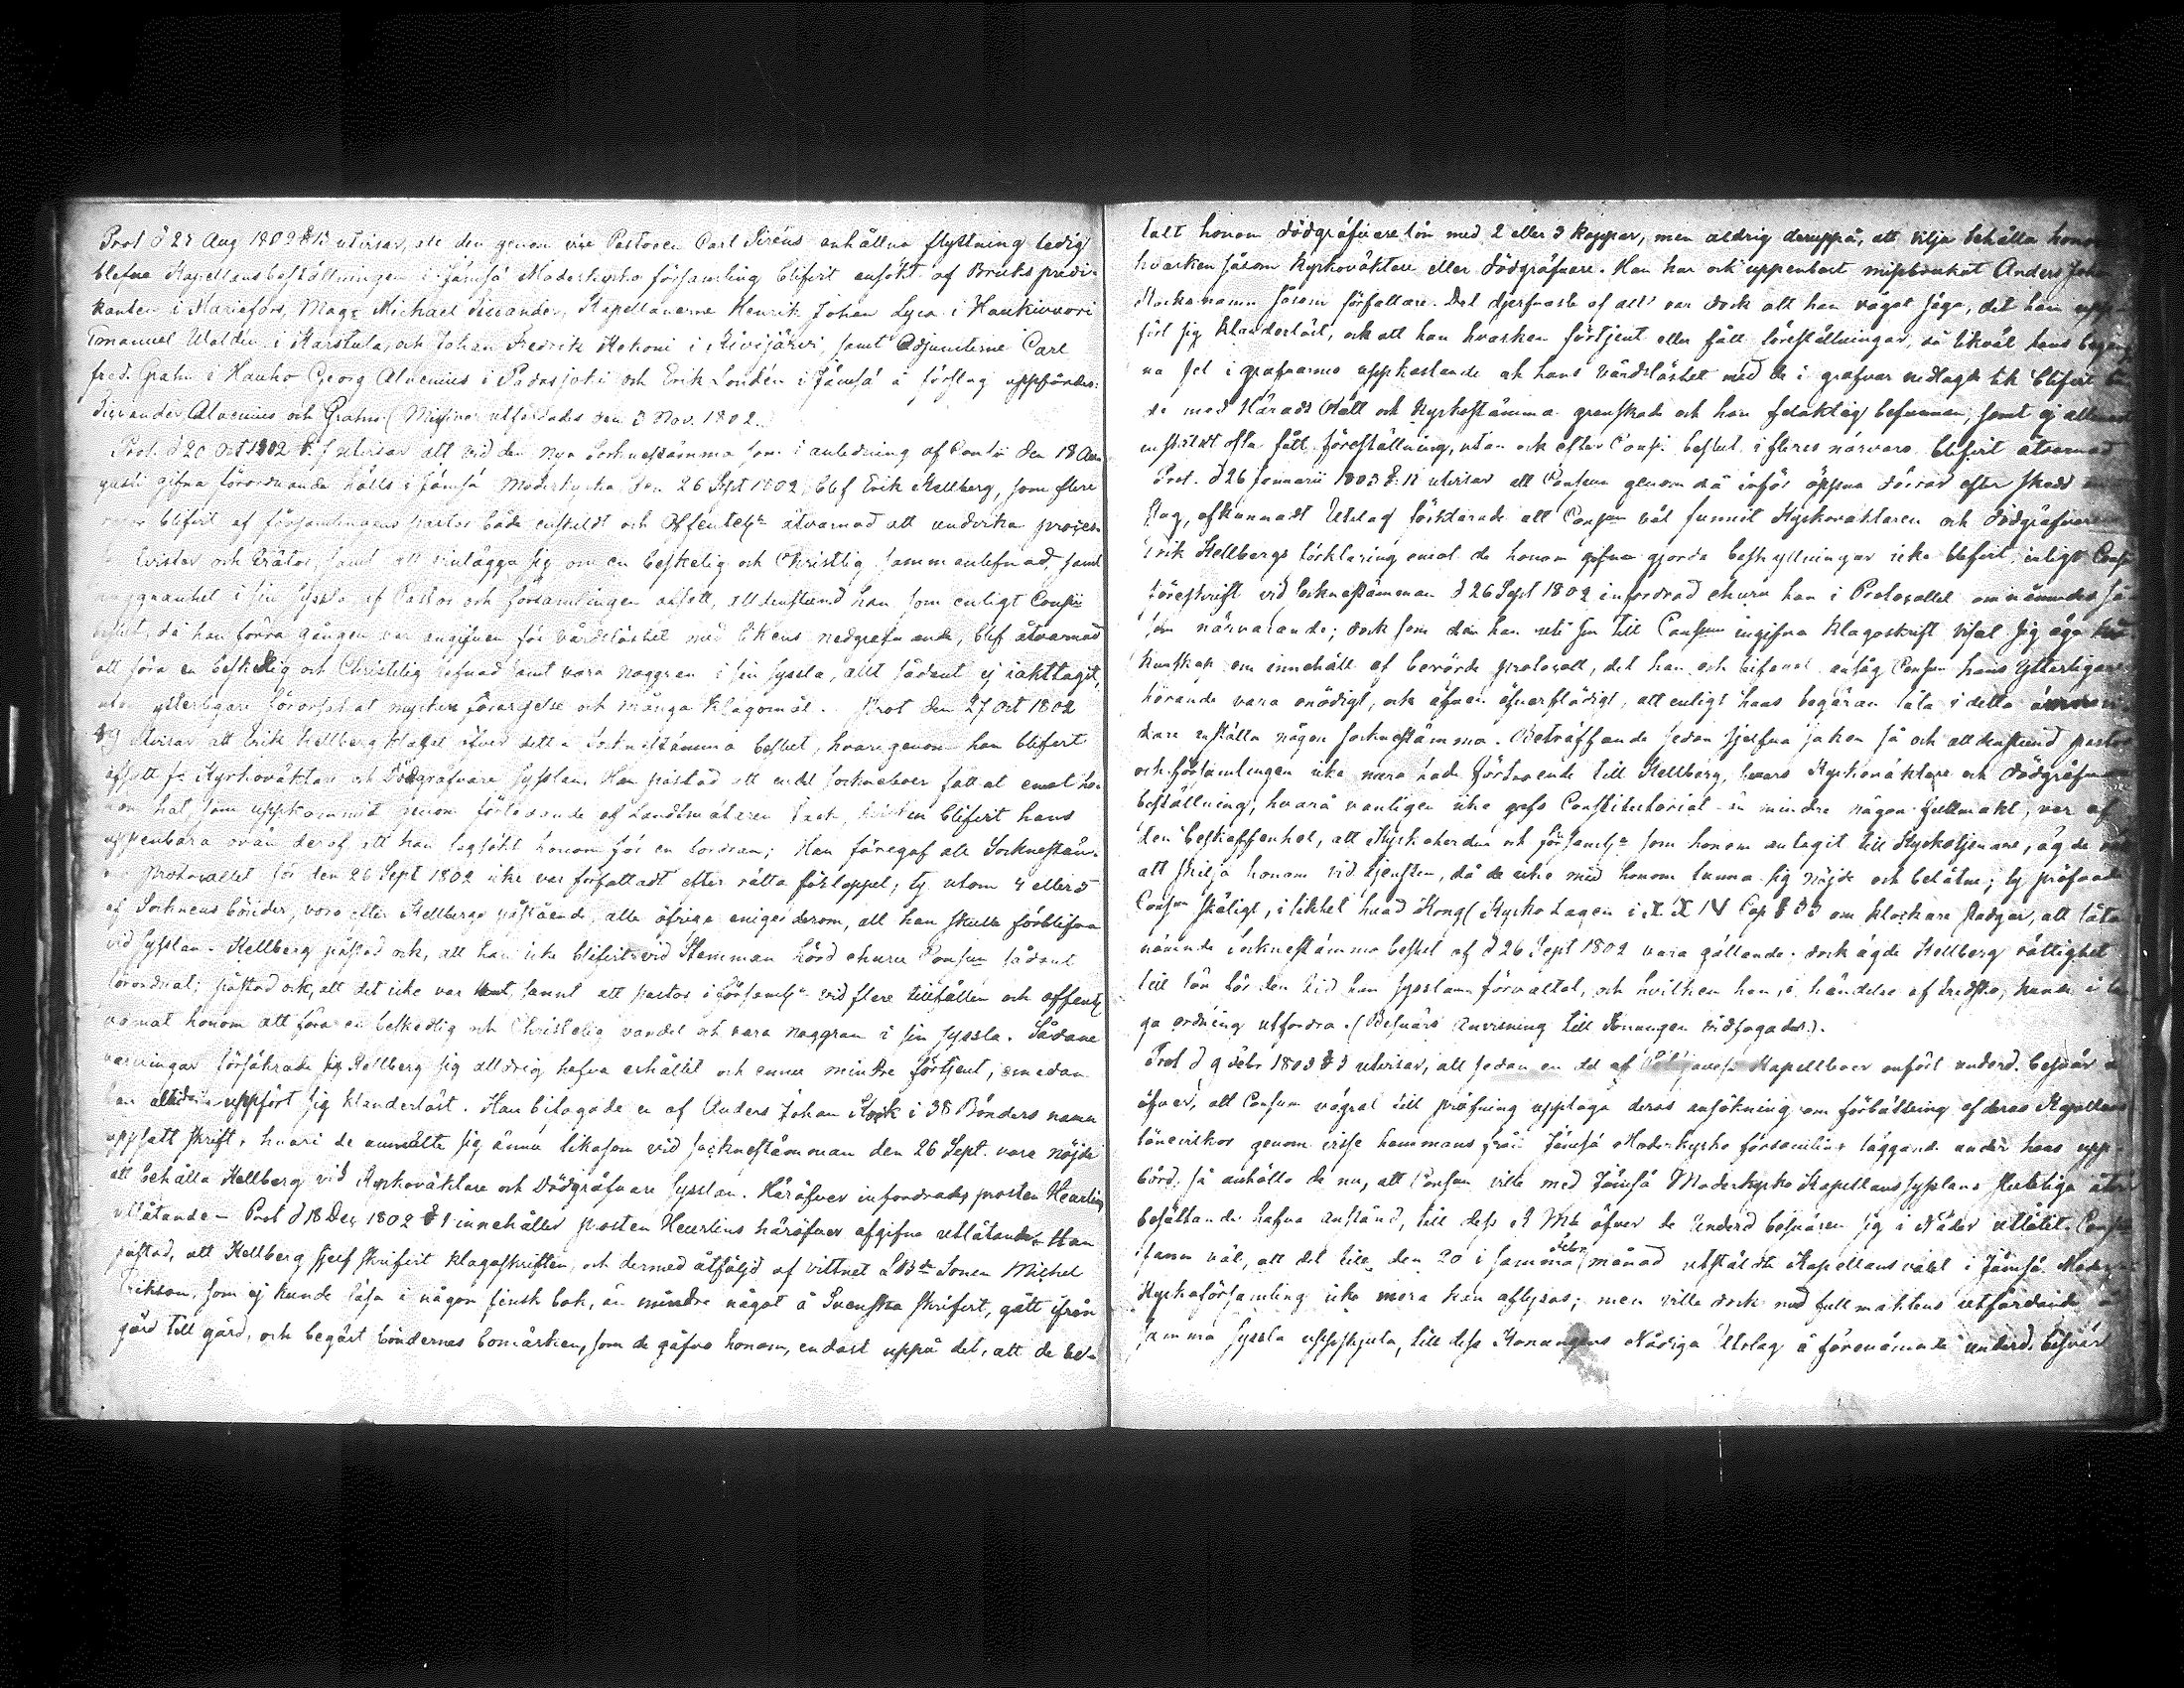 Prot d 25 Aug 1802 § 13 utvisar, att den genom vice Pastoren Carl Siréns anhållna flyttning ledig
blefne Kapellansbeställningen i Jämsä Moderkyrko församling blifvit ansökt af Bruks predi-
kanten i Mariefors, Mag: Michael Sivander, Kapellanerne Henrik Johan Lyra i Haukivuori
Emanuel Waldén i Karstula, och Johan Fredrik Kekoni i Kivijärvi samt Adjuncterne Carl
Fred. Grahn i Hauho Georg Alvenius i Padasjoki och Erik Londén i Jämsä å förslag uppfördes:
Sivander Alvenius och Grahn (Missiver utfärdades den 3 Nov. 1802.
Prot. d 20 Oct 1802 § utvisar att vid den nya Socknestämma som i anledning af Consii den 18 Au-
gusti gifna förordnande hölls i Jämsä Moderkyrka den 26 Sept 1802, blef Erik Kellberg, som flere
resor blifvit af församlingens pastor både enskildt och Offenteln åtvarnad att undvika proces-
tvister och trätor, samt att vinlägga sig om en beskelig och Christlig sammanlefnad, samt
noggranhet i sin syssla af Pastor och församlingen afsatt, alldenstund han som enligt Consii
beslut, då han förra gången var angifven för vårdslöshet med likens nedgrafvande, blef åtvarnad
att föra en beskedlig och Christelig lefnad samt vara noggran i sin syssla, allt sådant ej iakttagit,
utan ytterligare förorsakat mycken förargelse och många klagomål. Prot den 27 Oct 1802
§ 9 utvisar att Erik Kellberg klagat öfver detta Socknestämma beslut, hvarigenom han blifvit
afsatt fr. Kyrkoväktare och Dödgräfvare Sysslan. Han påstod att endel sockneboer fattat emot ho-
nom hat som uppkommit genom förledande af Landtmätaren Tack, hvilken blifvit hans
uppenbara ovän deraf att han lagsökt honom för en fordran; Han föregaf att Socknestäm-
mo Protocollet för den 26 Sept 1802 icke var författadt efter rätta förloppet, ty utom 4 eller 5
af Socknens bönder, voro efter Kellbergs påstående, alla öfriga eniga derom, att han skulle förblifva
vid Sysslan. Kellberg påstod ock, att han icke blifvit vid Stemman hörd ehuru Consum sådant
förordnat; påstod ock, att det icke var sannt att pastor i församln vid flere tillfällen och offentl
varnat honom att föra en beskedlig och Christelig vandel och vara noggran i sin syssla. Sådane
varningar försäkrade Kellberg sig alldrig hafva erhållit och ännu mindre förtjent, emedan
han alltid uppfört sig klanderlöst. Han bilagade en af Anders Johan Stock i 38 Bönders namn
uppsatt skrift, hvari de anmälte sig ännu likasom vid socknestämman den 26 Sept. vara nöjde
att behålla Kellberg vid Kyrkoväktare och Dödgräfvare Sysslan. Häröfver infordrades prosten Heurlins
utlåtande. Prot d 18 Dec 1802 § 1 innehåller prosten Heurlins häröfver afgifna utlåtande. Han
påstod, att Kellberg sjelf skrifvit klagoskriften, och dermed åtföljd af vittnet Sonen Michel
Erikson, som ej kunde läsa i någon finsk bok, än mindre något å Svenska skrifvit, gått ifrån
gård till gård, och begärt böndernes bomärken, som de gåfvo honom, endast uppå det, att de bet-
talt honom dödgräfvare lön med 2 eller 3 kappar, men aldrig deruppå, att vilja behålla honom
hvarken såsom Kyrkoväktare eller dödgräfvare. Han har ock uppenbart missbrukat Anders Johan
Stocks namn såsom författare. Det djerfvaste af allt var dock att han vågat säga, det han upp-
fört sig klanderlöst, och att han hvarken förtjent eller fått föreställningar, då likväl hans begång-
na fel i grafvarnes uppkastande och hans vårdslöshet med de i grafvar nedlagde lik blifvit
de med Härads Rätt och Kyrkostämma granskade och han felaktig befunnen, samt ej allenast
enskildt ofta fått föreställning, utan ock efter Consi beslut i fleres närvaro blifvit åtvarnad
Prot. d 26 Januarii 1803 § 12 utvisar att Consum genom då inför öppna dörrar efter skedt
slag, afkunnadt Utslag förklarade att Consum väl funnit Kyrkoväktaren och dödgräfvaren
Erik Kellbergs förklaring emot de honom gjorda beskyllningar icke blifvit enligt Consi
föreskrift vid Socknestämman d 26 Sept 1802 infordrad ehuru han i Protocollet omnämndes så-
som närvarande; dock som den han uti sin till Consum ingifna klagoskrift visat sig äga
kunskap om innehållet af berörde protocoll, det han ock bifogat ansåg Consum hans ytterligare
hörande vara onödigt, och äfven öfverflödigt, att enligt hans begäran låta i detta
dare anställa någon socknestämma. Beträffande sedan sjelfva saken så och alldenstund pastor
och församlingen icke mera hade förtroende till Kellberg, hvars Kyrkoväktare och dödgräfvare
beställning, hvarå vanligen icke gafs Constitutorial än mindre någon fullmakt, var af
den beskaffenhet, att Kyrkoherden och församln som honom antagit till Kyrkotjenare, ägde
att skilja honom vid tjensten, då de icke med honom kunna sig nöjde och belåtne; ty pröfvade
Consum skäligt, i likhet hvad Kongl Kyrko Lagen i Cap § 33 om klockare stadgar, att låta
nämnde Socknestämmo beslut af d 26 Sept 1802 vara gällande; dock ägde Kellberg rättighet
till lön för den tid han sysslan förvaltat, och hvilken han, i händelse af tredska, kunde i la-
ga ordning utfordra. (Besvärs Anvisning till Konungen bidfogades.).
Prot d 9 Febr 1803 § 3 utvisar, att sedan en del af Kapellboer anfört underd. besvär
öfver, att Consum vägrat till pröfning upptaga deras ansökning om förbättring af deras Kapellans
lönevilkor genom visse hemmans från Jämsä Moderkyrko församling läggande under hans upp-
börd, så anhöllo de nu, att Consum ville med Jämsä Moderkyrko Kapellans sysslans slutliga åter-
besättande hafva anstånd, till dess K Mt öfver de Underd besvären sig i Nåder utlåtit. Consum
fann väl, att det till den 20 i samma Febr månad utställdte Kapellans valet i Jämsä Moder-
Kyrkoförsamling icke mera kan aflysas; men ville dock med fullmaktens utfärdande
samma syssla uppskjuta, till dess Konungens Nådiga Utslag å förenämnde underd. besvär